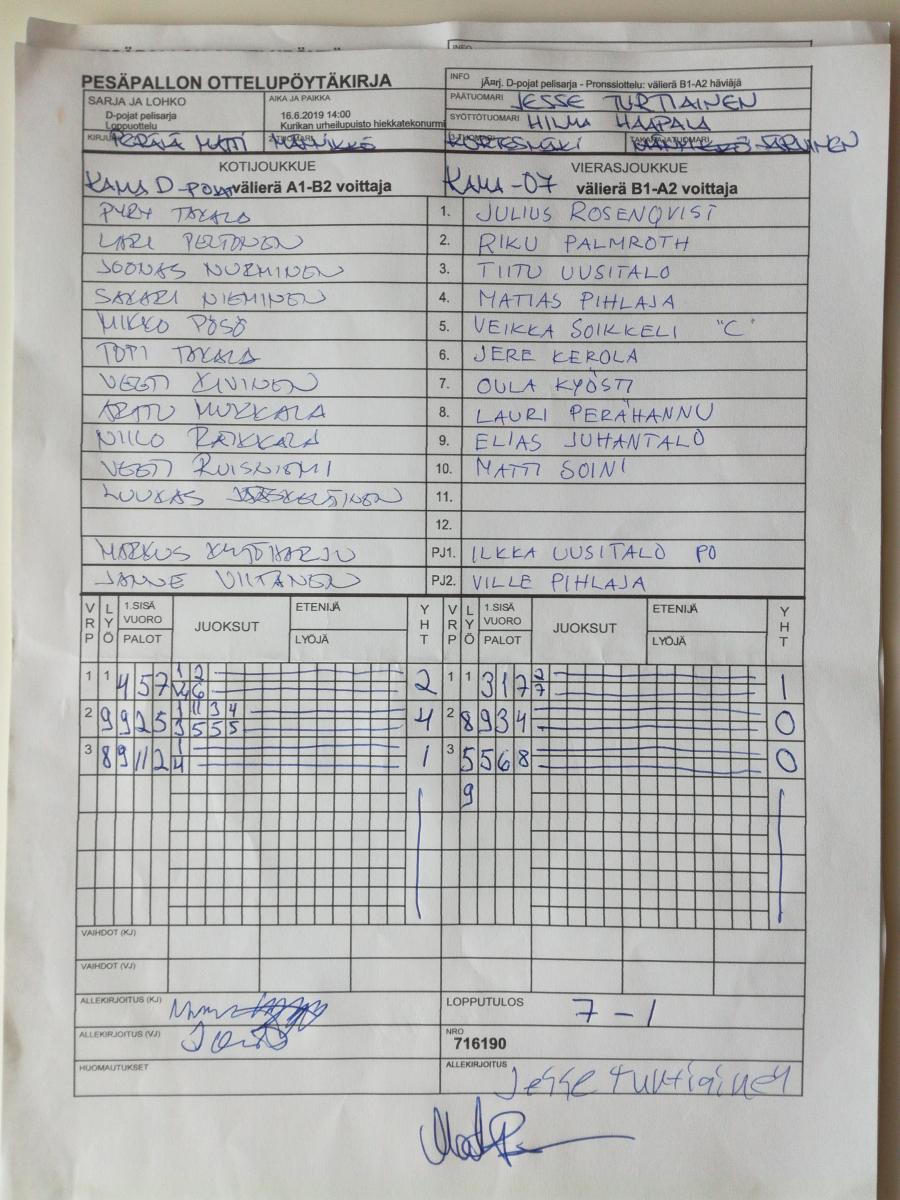 INFO
PESÄPALLON OTTELUPÖYTÄKIRJA
INFO jÃ¤rj. D-pojat pelisarja - Pronssiottelu: välierä B1-A2 häviäjä
SARJA JA LOHKO
D-pojat pelisarja
Loppuottelu
AIKA JA PAIKKA
16.6.2019 14:00
Kurikan urheilupuisto hiekkatekonurmi
PÄÄTUOMARI JESSE TURTIAINEN
SYÖTTÖTUOMARI HILMA HAAPALA
PERÄLÄ MATTI MÄNNIKKÖ KORTESMÄKI JÄRVINEN
KOTIJOUKKUE VIERASJOUKKUE
KAMA D-POJAT välierä A1-B2 voittaja KAMA -07 välierä B1-A2 voittaja
PYRY TAKALA 1. JULIUS ROSENQVIST
LARI PELTONEN 2. RIKU PALMROTH
JOONAS NURMINEN 3. TIITU UUSITALO
SAKARI NIEMINEN 4. MATIAS PIHLAJA
MIKKO PÖSÖ 5. VEIKKA SOIKKELI "C"
TOPI TAKALA 6. JERE KEROLA
VEETI KIVINEN 7. OULA KYÖSTI
ARTTU MURKKALA 8. LAURI PERÄHANNU
NIILO RAIKKALA 9. ELIAS JUHANTALO
VEETI RUISNIEMI 10. MATTI SOINI
LUUKAS JÄÄSKELÄINEN 11.
12.
MARKUS KYTÖHARJU PJ1. ILKKA UUSITALO PO
JANNE VIITANEN PJ2. VILLE PIHLAJA
VRP LYÖ 1.SISÄ VUORO PALOT JUOKSUT ETENIJÄ LYÖJÄ YHT VRP LYÖ 1.SISÄ VUORO PALOT JUOKSUT ETENIJÄ LYÖJÄ YHT
1 1 4 5 7 1 2 2 1 1 3 1 7 2 1
6 7
2 9 9 2 5 1 11 3 4 4 2 8 9 3 4 0
3 5 5 5
3 8 9 11 2 1 1 3 5 5 6 8 0
4
9
VAIHDOT (KJ)
VAIHDOT (VJ)
ALLEKIRJOITUS (KJ) LOPPUTULOS 7 - 1
ALLEKIRJOITUS (VJ) NRO
716190
HUOMAUTUKSET ALLEKIRJOITUS Jesse Turtiainen